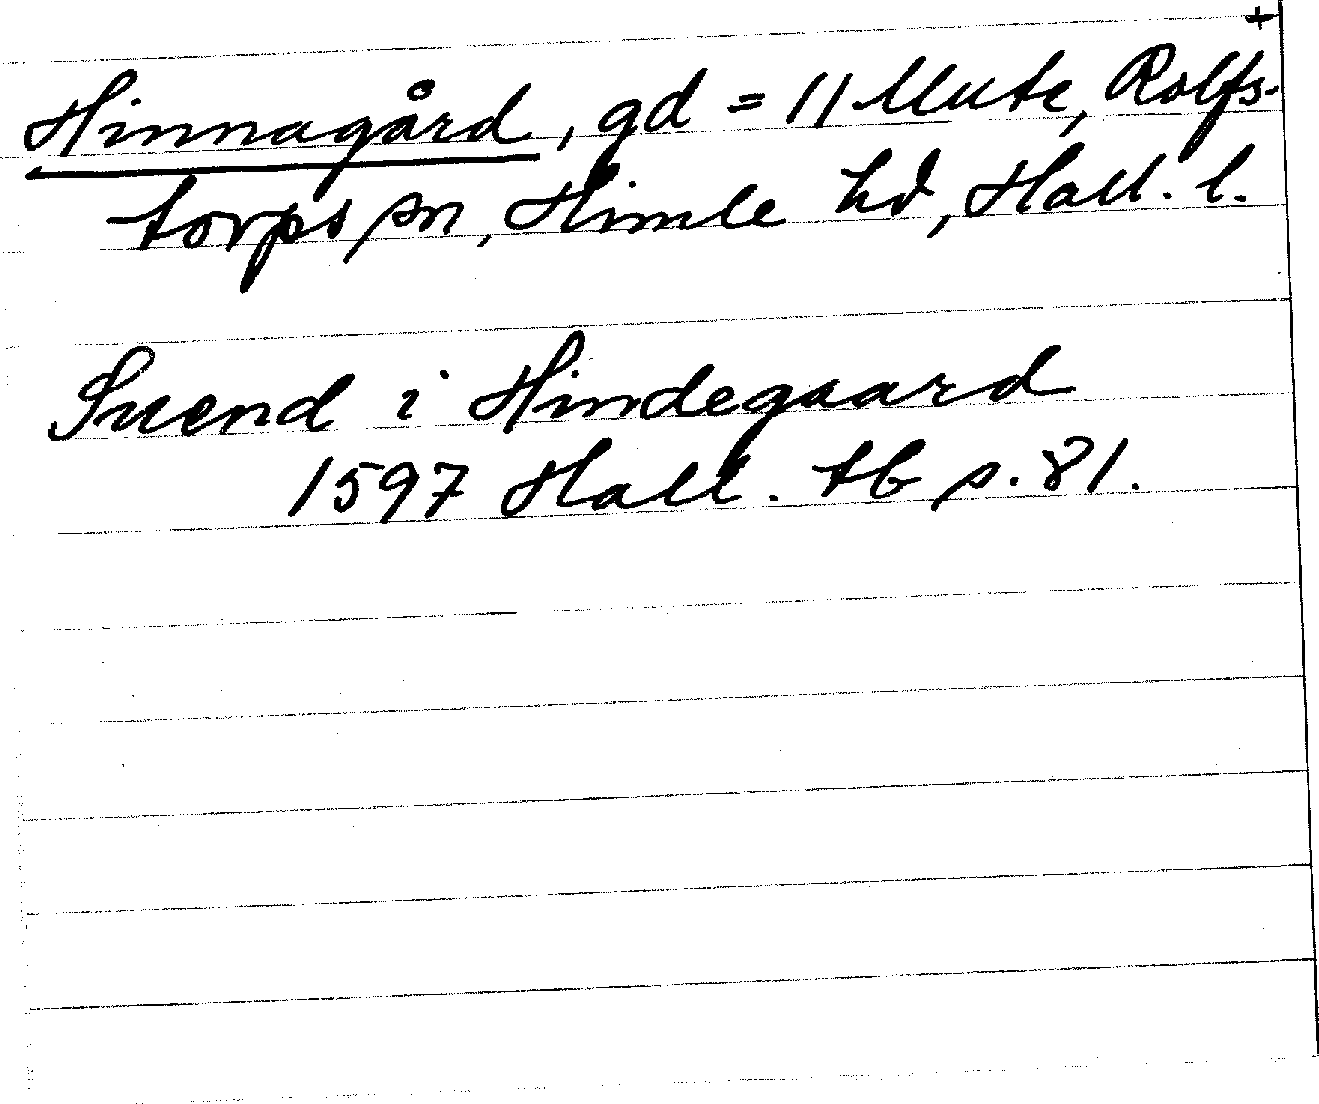 +
Hinnagård, gd = 11 Mute, Rolfs-
torps sn, Himle hd, Hall. l.
Suend i Hindegaard
1597 Hall. tb s. 81.